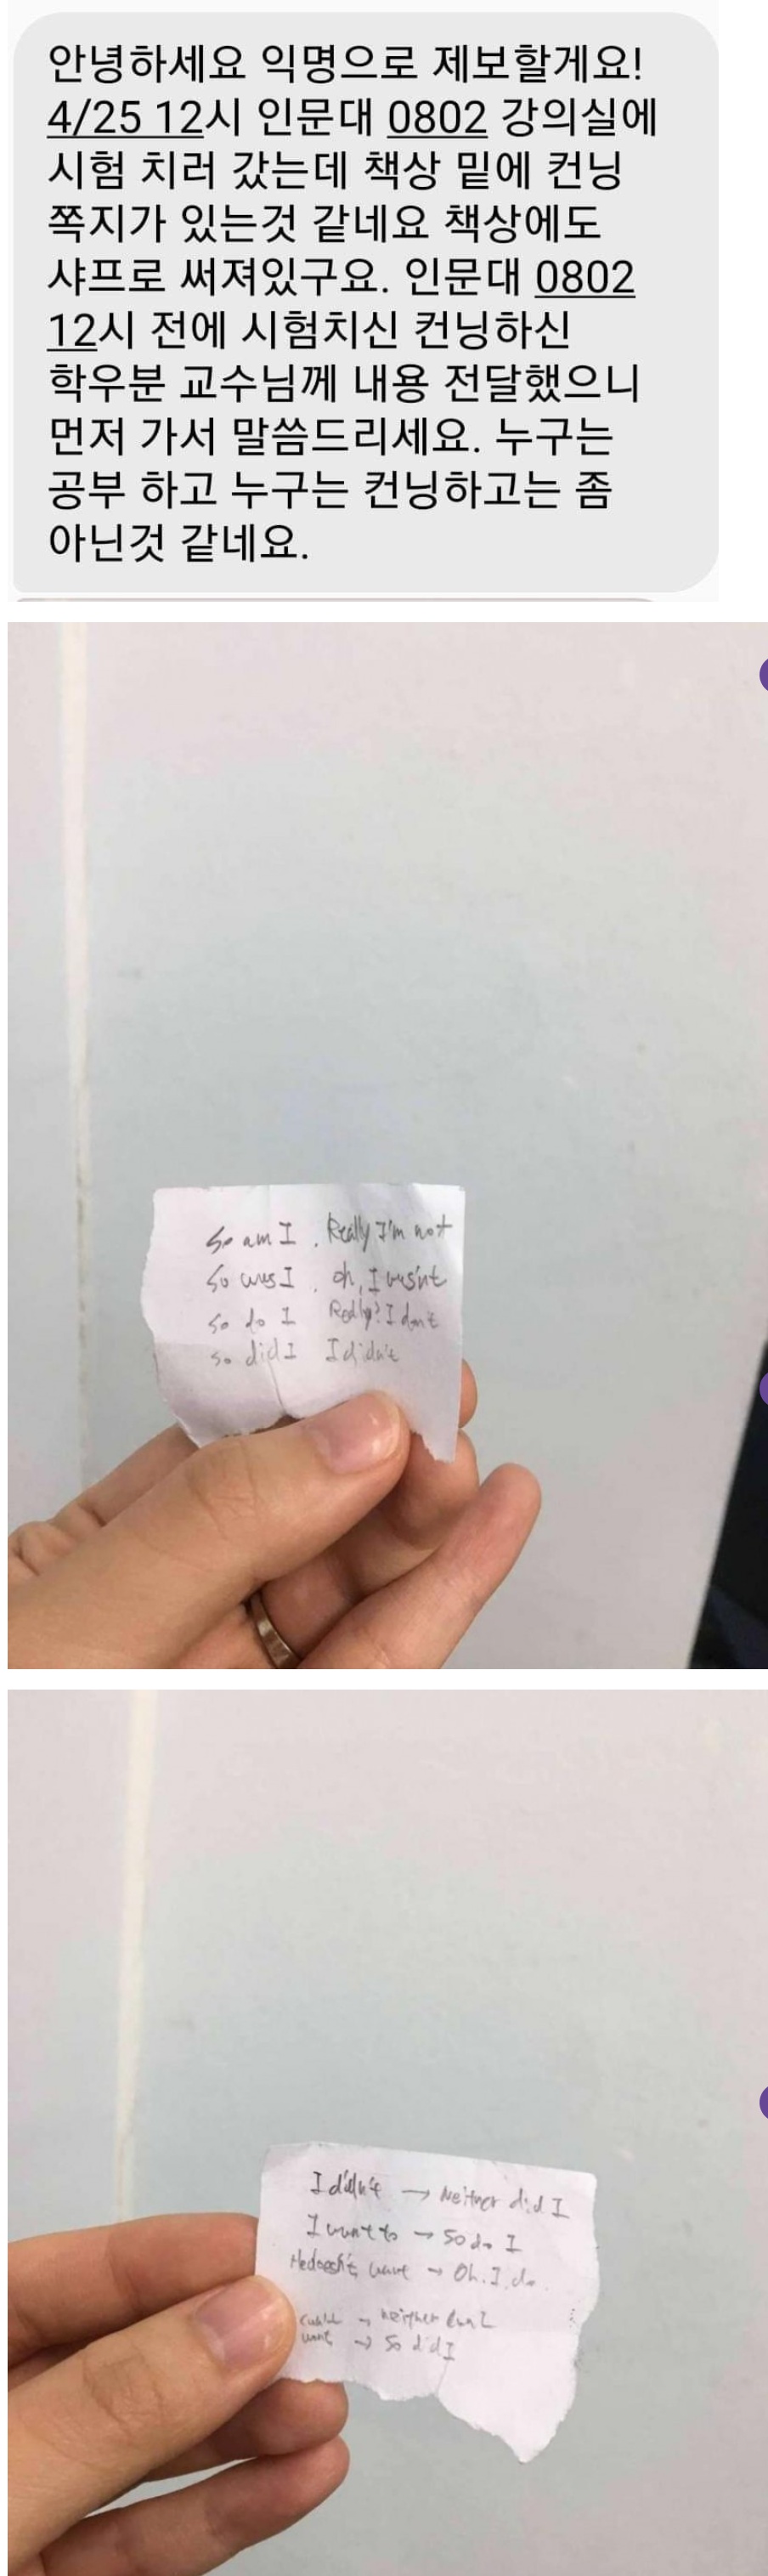 안녕하세요 익명으로 제보할게요!
4/25 12시 인문대 0802 강의실에
시험 치러 갔는데 책상 밑에 컨닝
쪽지가 있는것 같네요 책상에도
샤프로 써져있구요. 인문대 0802
12시 전에 시험치신 컨닝하신
학우분 교수님께 내용 전달했으니
먼저 가서 말씀드리세요. 누구는
공부 하고 누구는 컨닝하고는 좀
아닌것 같네요.
So am I . Really I'm not
So was I . oh, I wasn't
so do I Really? I don't
so did I I didn't
I didn't → Neither did I
I want to → So do I
He doesn't have → Oh. I do.
→ neither
want → So did I